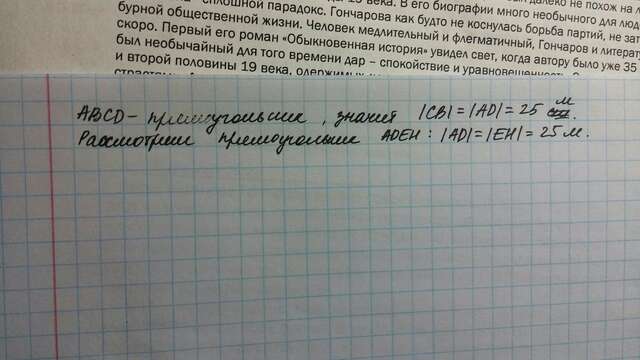 сплошной парадокс. Гончарова как будто не коснулась борьба партий, не зат
бурной общественной жизни. Человек медлительный и флегматичный, Гончаров и литерат
скоро. Первый его роман «Обыкновенная история» увидел свет, когда автору было уже 35
был необычайный для того времени дар – спокойствие и уравновешенность
и второй половины 19 века, одержимых
ABCD – прямоугольник, значит |CB| = |AD| = 25 м.
Рассмотрим прямоугольник ADEH : |AD| = |EH| = 25 м.